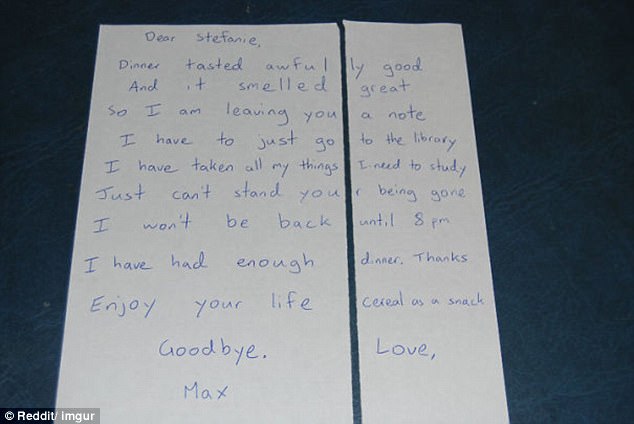 Dear Stefanie,
Dinner tasted awful ly good
And it smelled great
So I am leaving you a note
I have to just go to the library
I have taken all my things I need to study
Just can't stand you r being gone
I won't be back until 8 pm
I have had enough dinner. Thanks
Enjoy your life cereal as a snack
Goodbye. Love,
Max
© Reddit/ imgur